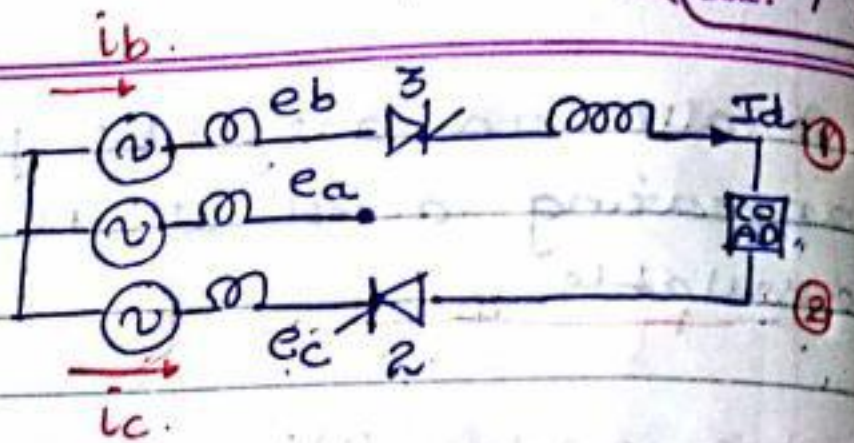 ib.
eb 3 Id 1
ea
LO
AD
ec 2 2
ic.